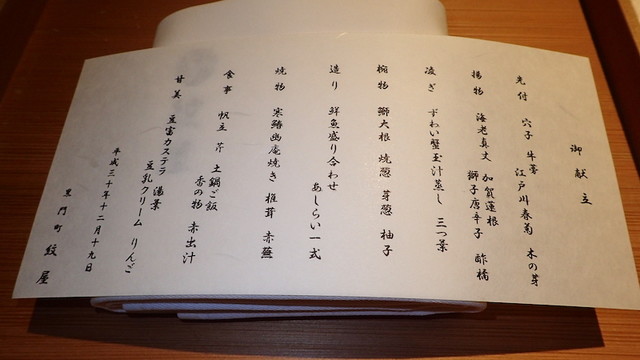 御献立
先付 穴子 牛蒡 江戸川春菊 木の芽
揚物 海老真丈 加賀蓮根 獅子唐辛子 酢橘
凌ぎ ずわい蟹玉汁蒸し 三つ葉
椀物 鰤大根 焼葱 芽葱 柚子
造り 鮮魚盛り合わせ あしらい一式
焼物 寒鰆幽庵焼き 椎茸 赤蕪
食事 帆立 芹 土鍋ご飯 香の物 赤出汁
甘美 豆富カステラ 湯葉
豆乳クリーム りんご
平成三十年十二月十九日
黒門町 紋屋